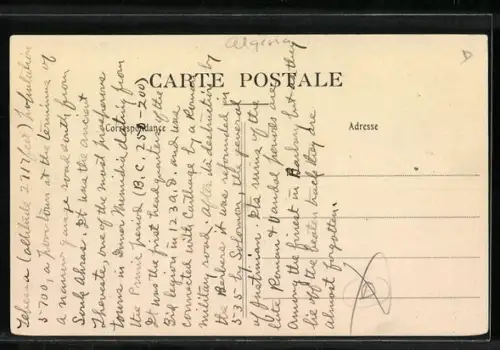 Algeria
CARTE POSTALE
Correspondance
Adresse
Tebessa (altitude 2717 feet) population
5700, a poor town at the terminus of
a narrow gauge road south from
Souk Ahras. It was the ancient
Theveste, one of the most prosperous
towns in Inner Numidia dating from
the Punic period (B.C. 250-200)
It was the first headquarters of the
3rd legion in 123 A.D. and was
connected with Carthage by a Roman
military road. After its destruction by
the Berbers it was refounded in
535 by Solomon, the general
of Justinian. Its ruins of the
late Roman & Vandal periods are
among the finest in Barbary but as they
lie off the beaten track they are
almost forgotten.